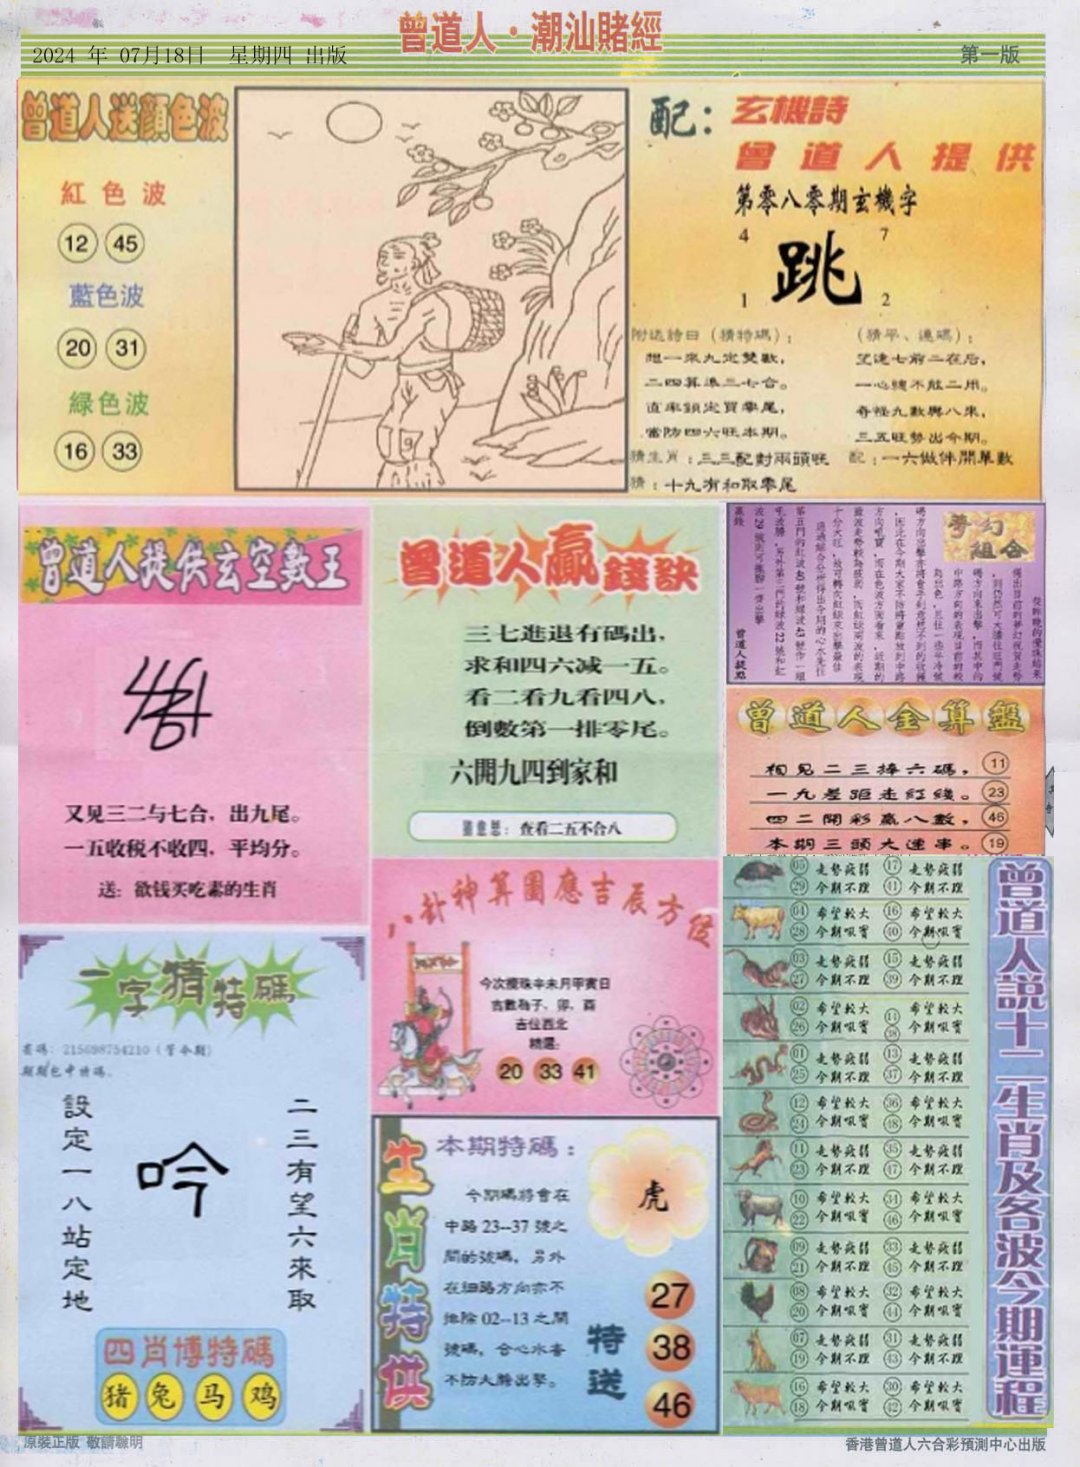 曾道人·潮汕賭經
2024 年 07月18日 星期四 出版
第一版
曾道人送顏色波
紅色波
12 45
藍色波
20 31
綠色波
16 33
配：玄機詩
曾道人提供
第零八零期玄機字
4 7
跳
1 2
附送詩曰（猜特碼）：
想一來九定雙數，
二四算準三七合。
直率鎖定買零尾，
當防四六旺本期。
猜生肖：三三配對兩頭旺
猜：十九有和取零尾
（猜平、連碼）：
望遠七前二在后，
一心總不能二用。
奇怪九數與八來，
三五旺勢出今期。
配：一六做伴開單數
曾道人提供玄空數王
又见三二与七合，出九尾。
一五收税不收四，平均分。
送：欲钱买吃素的生肖
曾道人贏錢訣
三七進退有碼出，
求和四六减一五。
看二看九看四八，
倒數第一排零尾。
六開九四到家和
查看二五不合八
夢幻組合
曾道人提點
曾道人金算盤
相見二三捧六碼， 11
一九差距走紅綫。 23
四二開彩贏八數， 46
本期三頭大連串。 19
一字猜特碼
玄碼：215698754210（管今期）
期期包中特碼．
二三有望六來取
吟
設定一八站定地
四肖博特碼
猪 兔 马 鸡
八卦神算圖應吉辰方位
今次攪珠辛未月甲寅日
吉數為子、卯、酉
吉位西北
精選：
20 33 41
生肖特供
本期特碼：
今期碼將會在
中路 23--37 號之
間的號碼，另外
在細路方向亦不
排除 02--13 之間
號碼，合心水者
不防大膽出擊。
虎
特送
27
38
46
曾道人說十二生肖及各波今期運程
05 29 走勢疲弱 今期不理 17 41 走勢疲弱 今期不理
04 28 希望較大 今期吼實 16 40 希望較大 今期吼實
03 27 走勢疲弱 今期不理 15 39 走勢疲弱 今期不理
02 26 希望較大 今期吼實 14 38 希望較大 今期吼實
01 25 走勢疲弱 今期不理 13 37 走勢疲弱 今期不理
12 24 希望較大 今期吼實 36 48 希望較大 今期吼實
11 23 走勢疲弱 今期不理 35 47 走勢疲弱 今期不理
10 22 希望較大 今期吼實 34 46 希望較大 今期吼實
09 21 走勢疲弱 今期不理 33 45 走勢疲弱 今期不理
08 20 希望較大 今期吼實 32 44 希望較大 今期吼實
07 19 走勢疲弱 今期不理 31 43 走勢疲弱 今期不理
16 18 希望較大 今期吼實 30 42 希望較大 今期吼實
原裝正版 敬請聯明
香港曾道人六合彩預測中心出版